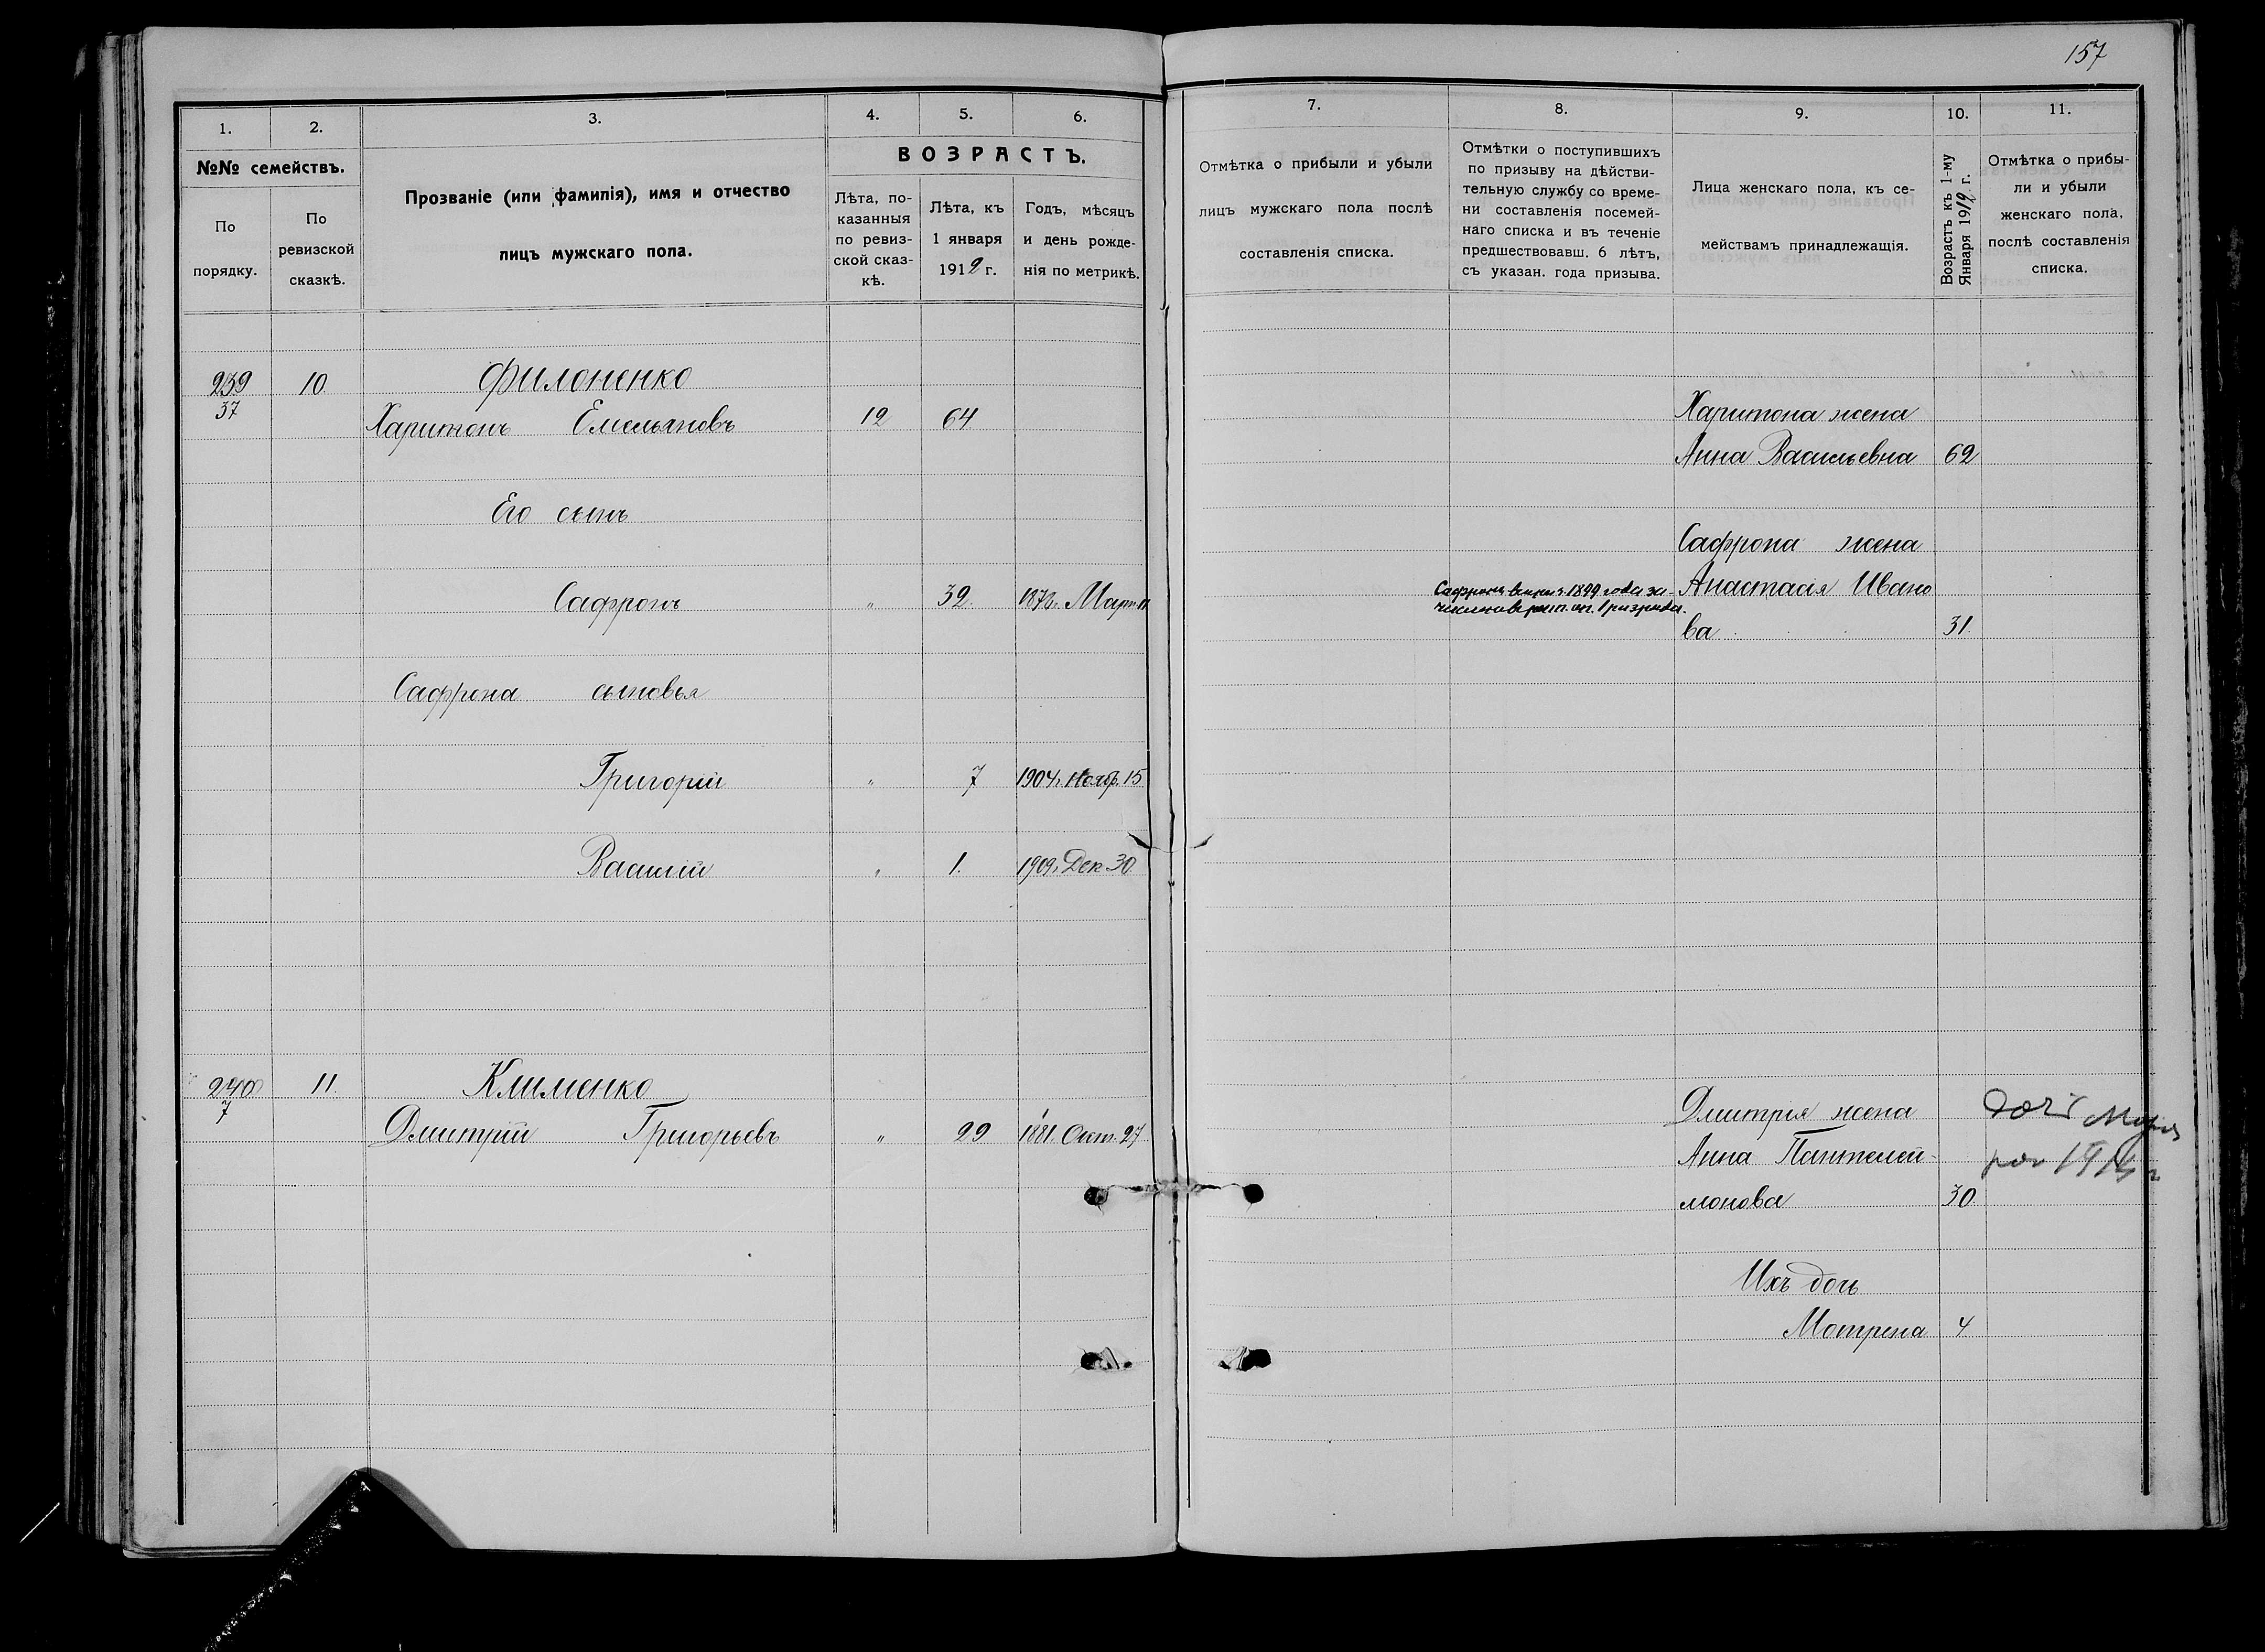 157
1.
2.
3.
4.
5.
6.
№№ семействъ.
По порядку.
По ревизской сказкѣ.
Прозваніе (или фамилія), имя и отчество
лицъ мужскаго пола.
ВОЗРАСТЪ.
Лѣта, по-
казанныя
по ревиз-
ской сказ-
кѣ.
Лѣта, къ
1 января
1912 г.
Годъ, мѣсяцъ
и день рожде-
нія по метрикѣ.
7.
8.
9.
10.
11.
Отмѣтка о прибыли и убыли
лицъ мужскаго пола послѣ
составленія списка.
Отмѣтки о поступившихъ
по призыву на дѣйстви-
тельную службу со време-
ни составленія посемей-
наго списка и въ теченіе
предшествовавш. 6 лѣтъ,
съ указан. года призыва.
Лица женскаго пола, къ се-
мействамъ принадлежащія.
Возрастъ къ 1-му
Января 1912 г.
Отмѣтка о прибы-
ли и убыли
женскаго пола,
послѣ составленія
списка.
239 10 Филоненко
37 Харитонъ Емельяновъ 12 64
Его сынъ
Сафронъ " 32 Март
Сафрона сыновья
Григорій " 7 1904 г. Нояб. 15
Василій " 1. 1909 г. Дек 30
240 11. Клименко
7 Дмитрій Григорьевъ " 29 1881. Окт. 27
Харитона жена
Анна Васильевна 62
Сафрона жена
Сафронъ 1899 года за-
Анастасія Ивано
ва 31
1 разряда.
Дмитрія жена
Анна Пантелей-
монова 30
Ихъ дочь
Мотрена 4